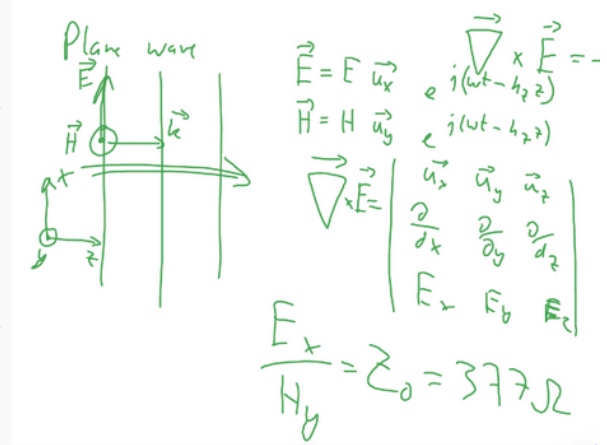 Plane wave
E⃗
H⃗
k⃗
x
y
z
E⃗ = E u⃗ₓ e^{j(ωt - k_z z)}
H⃗ = H u⃗_y e^{j(ωt - k_z z)}
∇⃗ × E⃗ = -
∇⃗ × E⃗ =
u⃗ₓ u⃗_y u⃗_z
∂/∂x ∂/∂y ∂/∂z
Eₓ E_y E_z
Eₓ/H_y = Z₀ = 377 Ω